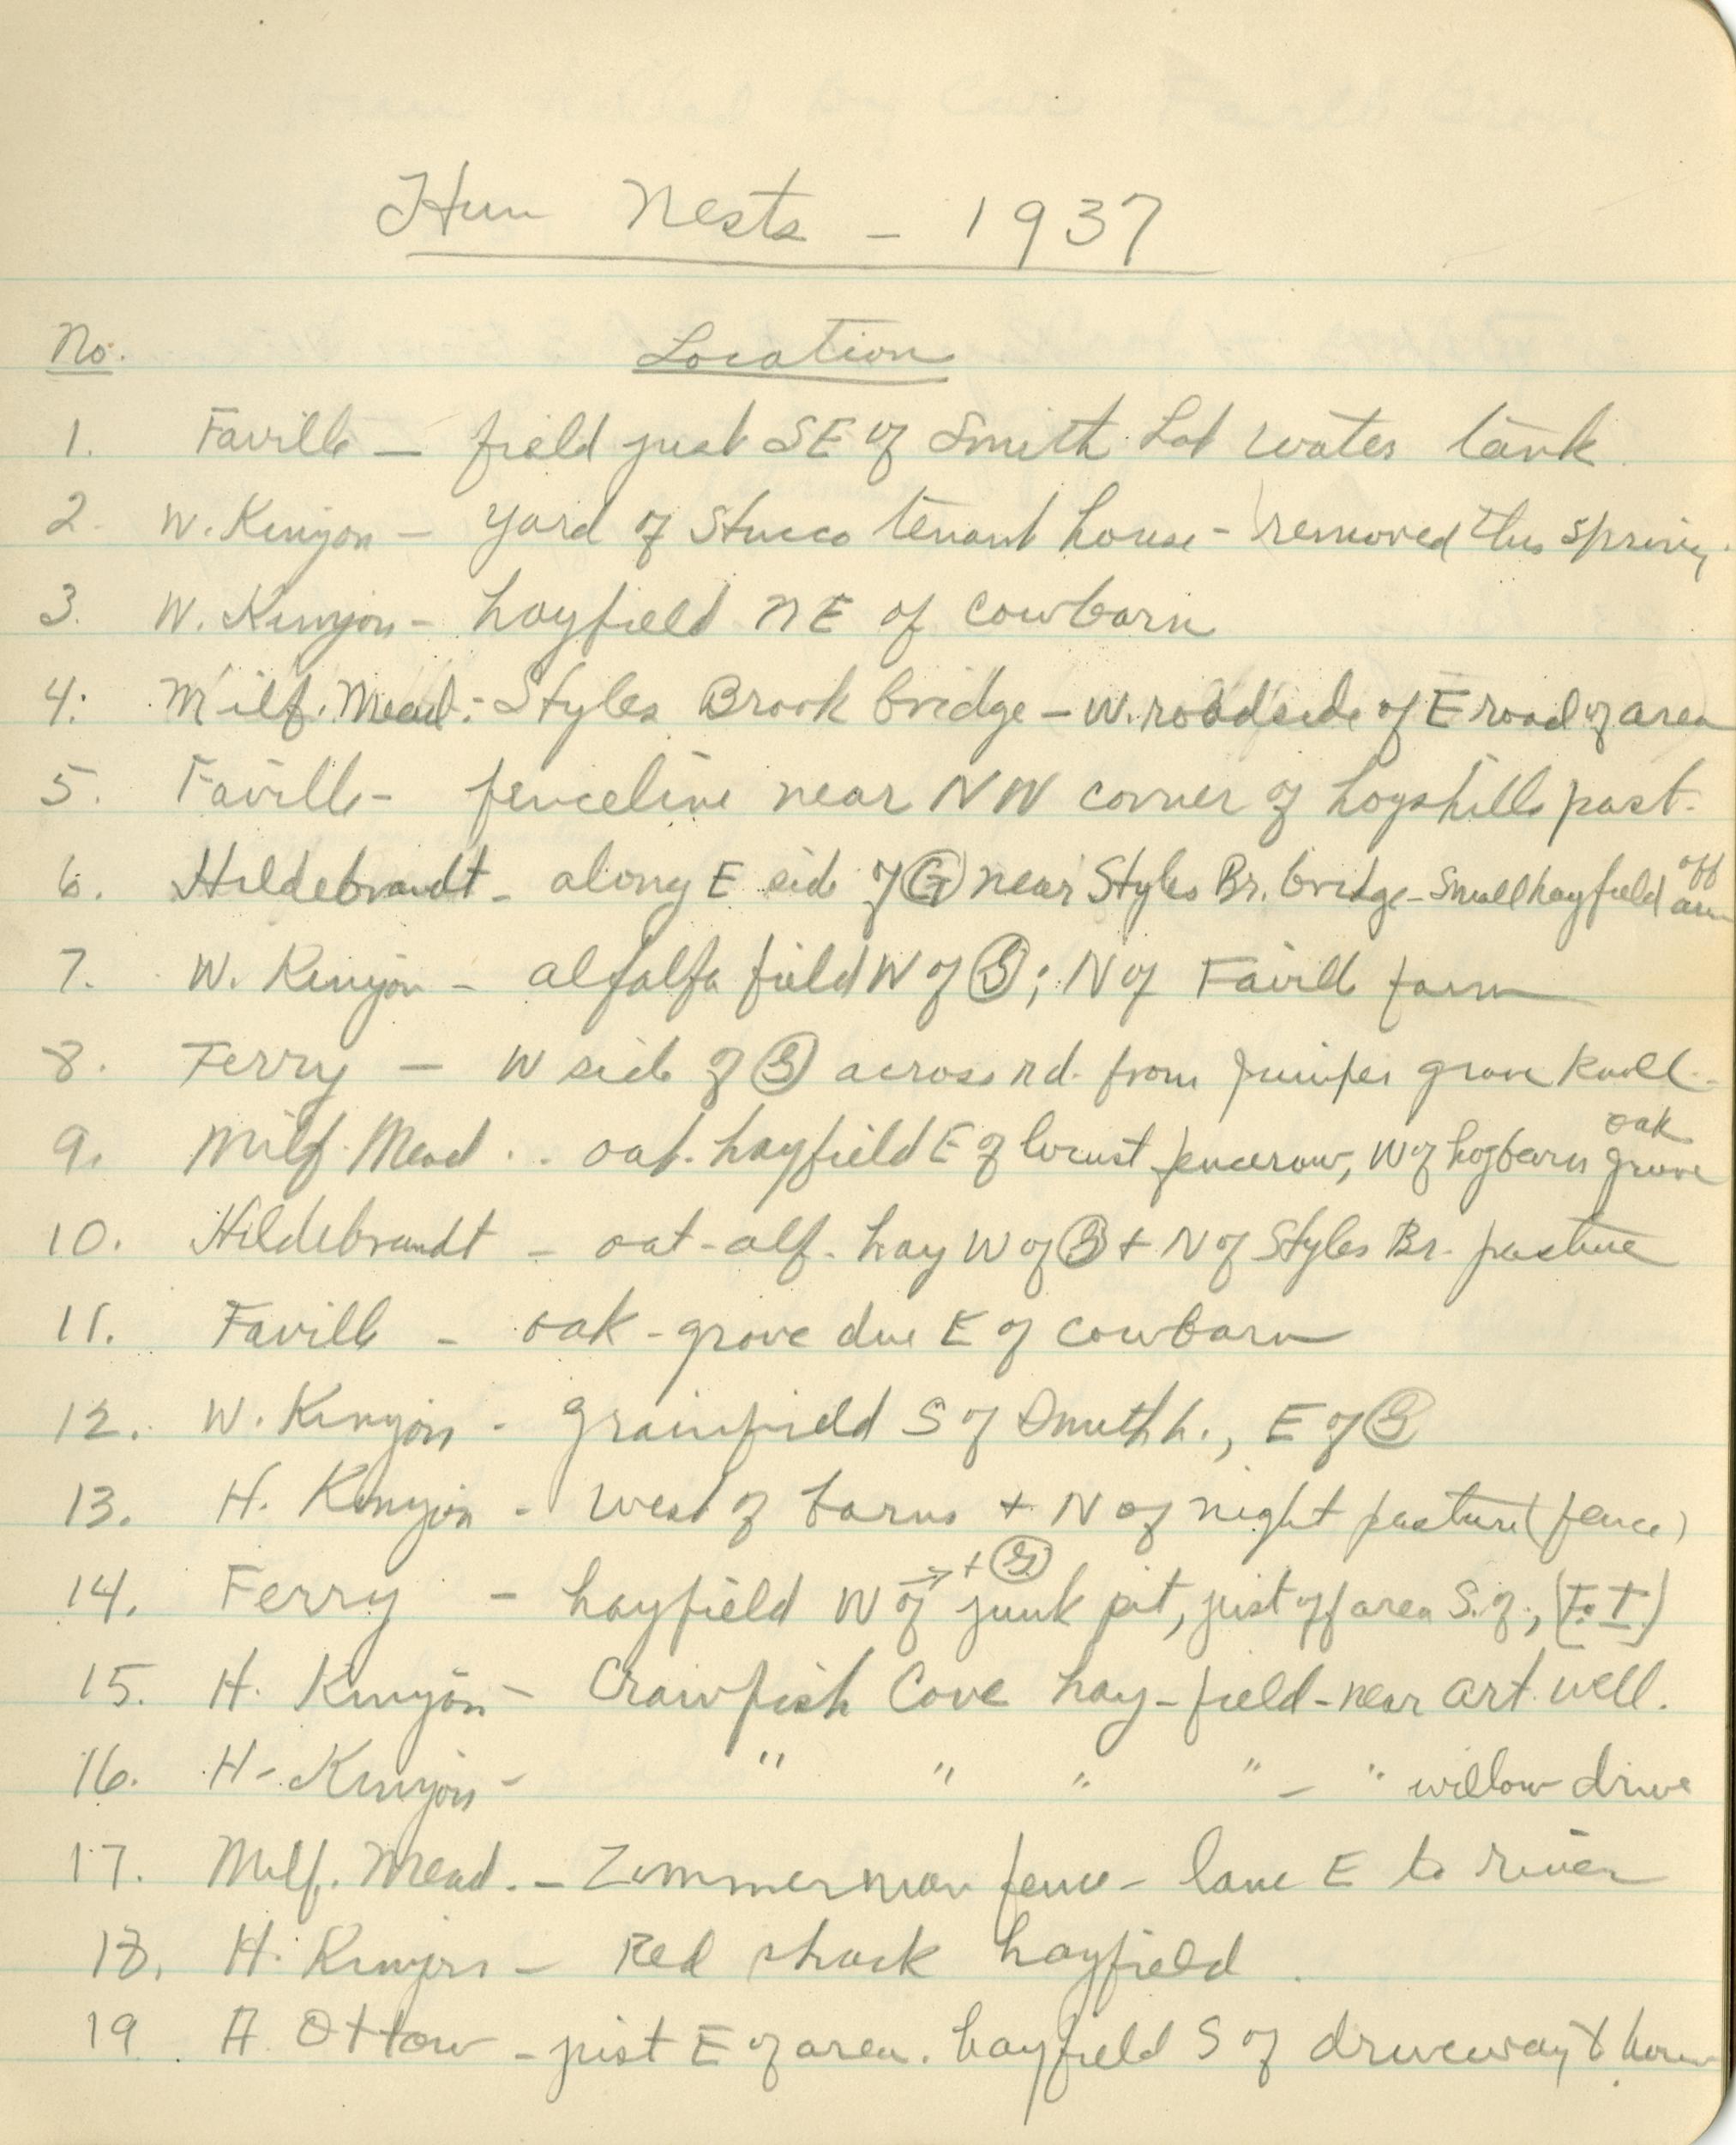 Hun Nests - 1937
No. Location
1. Faville - field just SE of Smith Lot water tank
2. W. Kenyon - yard of Stucco tenant house - removed this spring.
3. W. Kenyon - hayfield NE of cowbarn
4. Milf. Mead. - Styles Brook bridge - W. roadside of E road of area
5. Faville - fenceline near NW corner of hogshills past.
6. Hildebrandt - along E side of G near Styles Br. bridge - small hayfield off area
7. W. Kenyon - alfalfa field W of G; N of Faville farm
8. Ferry - W side of G across rd. from Juniper grove knoll.
9. Milf. Mead .. oat. hayfield E of locust fencerow, W of hogbarn oak grove
10. Hildebrandt - oat-alf. hay W of G + N of Styles Br. pasture
11. Faville - oak-grove due E of cowbarn
12. W. Kenyon - grainfield S of Smith h., E of G
13. H. Kenyon - west of barns + N of night pasture (fence)
14. Ferry - hayfield W of → + G junk pit, just off area S. of, (F. I.)
15. H. Kenyon - Crawfish Cove hay-field - near art. well.
16. H. Kenyon - " " " " - " willow drive
17. Milf. Mead. - Zimmerman fence - lane E to river
18. H. Kenyon - Red shack hayfield.
19. A. Ottow - just E of area. hayfield S of driveway & house